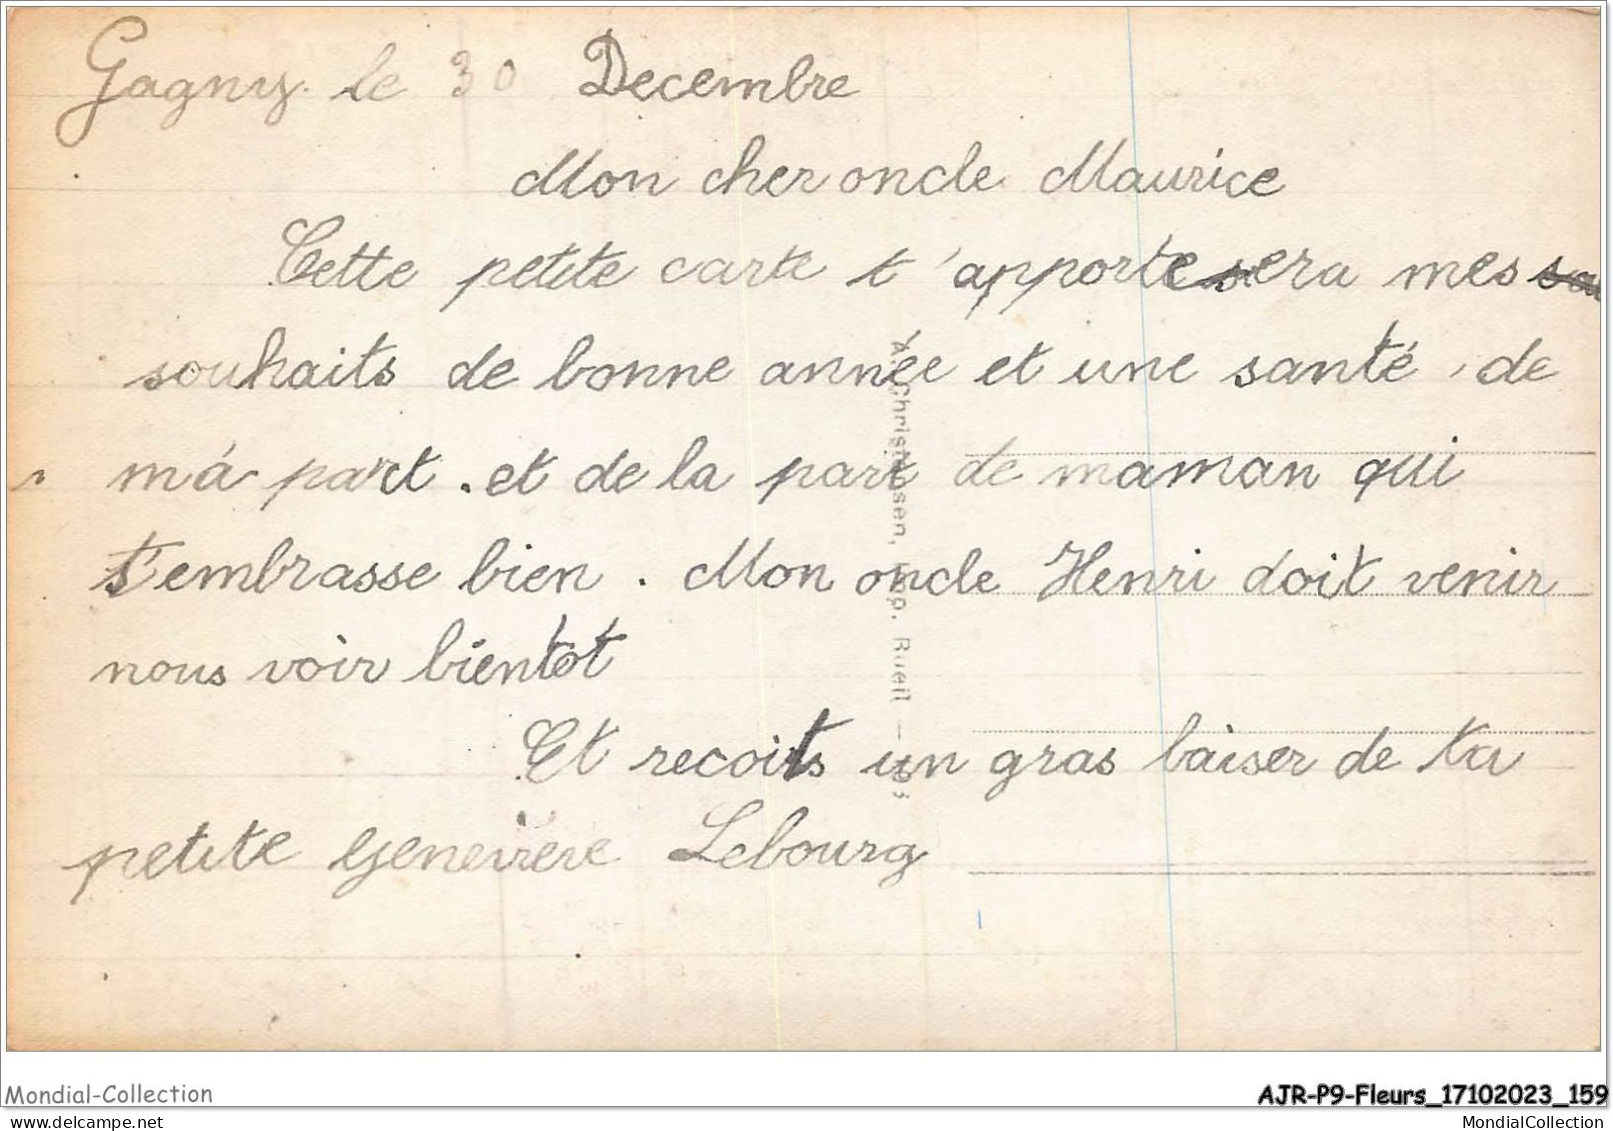 Gagny le 30 Decembre
Mon cher oncle Maurice
Cette petite carte t'apportesera mes
souhaits de bonne année et une santé de
ma part. et de la part de maman qui
t'embrasse bien. Mon oncle Henri doit venir
nous voir bientot
Et recoits un gras baiser de ta
petite Genevieve Lebourg
A. Christensen, Imp. Rueil
Mondial-Collection
AJR-P9-Fleurs_17102023_159
www.delcampe.net
MondialCollection